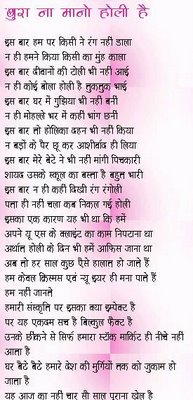 बुरा ना मानो होली है
इस बार हम पर किसी ने रंग नहीं डाला
न ही हमने किया किसी का मुंह काला
इस बार दीवानों की टोली भी नहीं आई
न ही कोई बोला होली है तुकतुक भाई
इस बार घर में गुझिया भी नहीं बनी
न ही मोहल्ले भर में कहीं भांग छनी
इस बार तो होलिका दहन भी नहीं किया
न बड़ों के पैर छू कर आशीर्वाद ही लिया
इस बार मेरे बेटे ने भी नहीं मांगी पिचकारी
शायद उसके स्कूल का बस्ता है बहुत भारी
इस बार न ही कहीं दिखी रंग रंगोली
पता ही नहीं चला कब निकल गई होली
इसका एक कारण यह भी था कि हमें
अपने यू एस के क्लाइंट का काम निपटाना था
अर्थात होली के दिन भी हमें आफिस जाना था
अब तो हर साल कुछ ऐसे हालात हो जाते हैं
हम केवल क्रिसमस एवं न्यू इयर ही मना पाते हैं
हम नहीं जानते
हमारी संस्कृति पर इसका क्या इम्पेक्ट है
पर यह एकदम सच है बिल्कुल फैक्ट है
उनके छींकने से सिर्फ हमारा स्टॉक मार्किट ही नीचे नहीं
आता है
घर बैठे बैठे हमारे देश की मुर्गियों तक को जुकाम हो
जाता है
यह आज का नहीं चार सौ साल पुराना खेल है